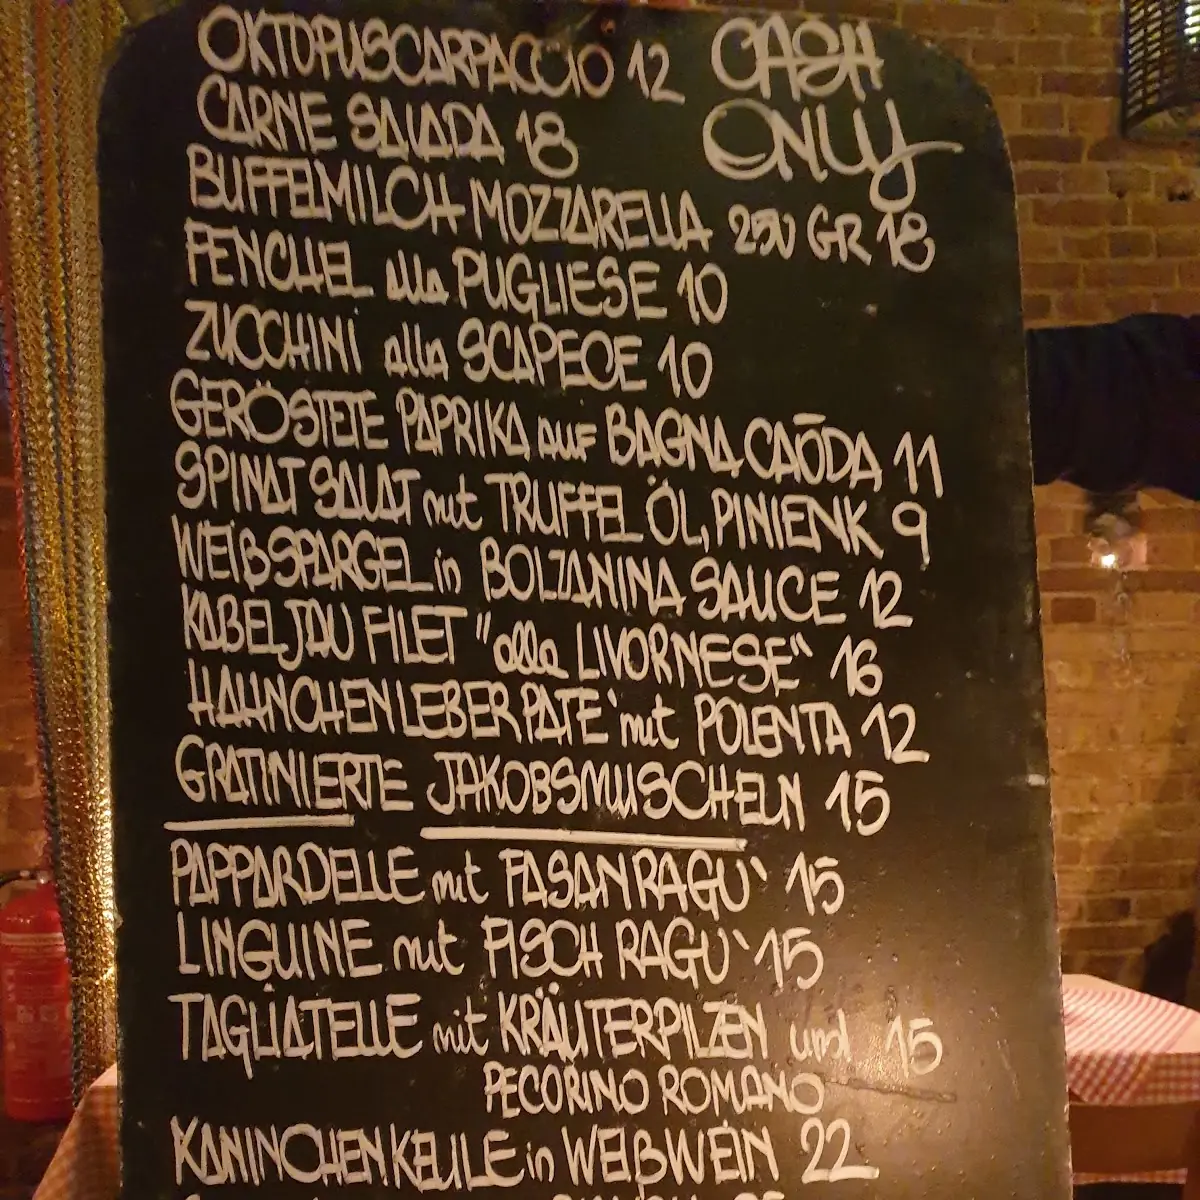 OKTOPUSCARPACCIO 12
CASH
ONLY
CARNE SALADA 18
BUFFELMILCH MOZZARELLA 250 GR 18
FENCHEL alla PUGLIESE 10
ZUCCHINI alla SCAPECE 10
GERÖSTETE PAPRIKA AUF BAGNA CAŌDA 11
SPINAT SALAT mit TRUFFEL ÖL, PINIENK 9
WEIßSPARGEL in BOLZANINA SAUCE 12
KABELJAU FILET "alla LIVORNESE" 16
HAHNCHENLEBER PATE' mit POLENTA 12
GRATINIERTE JAKOBSMUSCHELN 15
PAPPARDELLE mit FASAN RAGU` 15
LINGUINE mit FISCH RAGU` 15
TAGLIATELLE mit KRÄUTERPILZEN und 15
PECORINO ROMANO
KANINCHENKEULE in WEIßWEIN 22